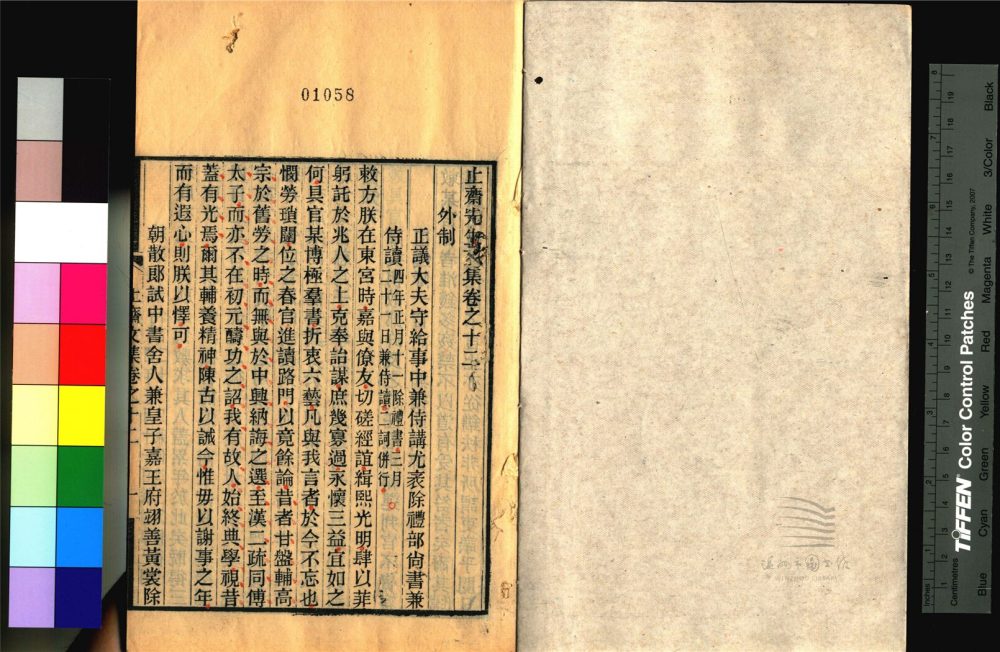 01058
止齋先生文集卷之十二
外制
正議大夫守給事中兼侍講尤袤除禮部尚書兼
侍讀四年正月十一除禮書三月
二十一日兼侍讀二詞併行
敕方朕在東宮時嘉與僚友切磋經誼緝熙光明肆以菲
躬託於兆人之上克奉詒謀庶幾寡過永懷三益宜如之
何具官某博極羣書折衷六藝凡與我言者於今不忘也
憫勞瑣闥位之春官進讀路門以竟餘論昔者甘盤輔高
宗於舊勞之時而無與於中興納誨之選至漢二疏同傅
太子而亦不在初元疇功之詔我有故人始終典學視昔
蓋有光焉爾其輔養精神陳古以誠今惟毋以謝事之年
而有遐心則朕以懌可
朝散郎試中書舍人兼皇子嘉王府翊善黃裳除
止齋文集卷之十二
一
Inches
Centimetres
TIFFEN Color Control Patches
© The Tiffen Company, 2007
Blue
Cyan
Green
Yellow
Red
Magenta
White
3/Color
Black